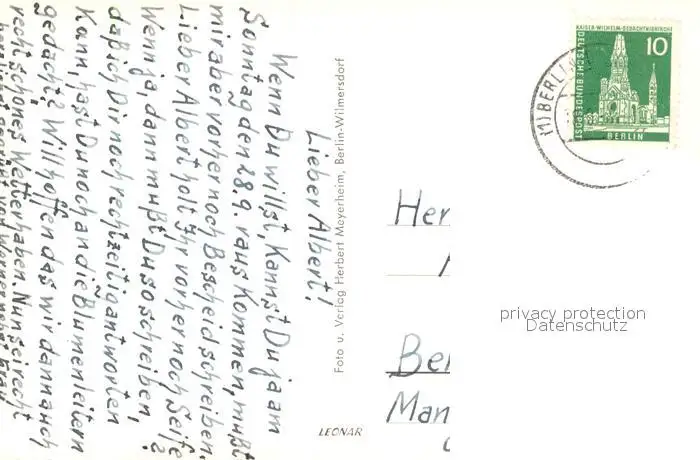 Lieber Albert!
Wenn Du willst, Kannst Du ja am
Sonntag den 28.9. raus Kommen, mußt
mir aber vorher noch Bescheid schreiben.
Lieber Albert holt Ihr vorher noch Seife?
Wenn ja, dann mußt Du so schreiben,
daß ich Dir noch rechtzeitig antworten
Kann, hast Du noch an die Blumenleitern
gedacht? Will hoffen das wir dann auch
recht schönes Wetter haben. Nun sei recht
herzlichst gegrüßt von Werner nebst Frau
Foto u. Verlag Herbert Meyerheim, Berlin-Wilmersdorf
LEONAR
KAISER-WILHELM-GEDÄCHTNISKIRCHE
10
DEUTSCHE BUNDESPOST
BERLIN
(1) BERLIN
Her
Be
Man
privacy protection
Datenschutz